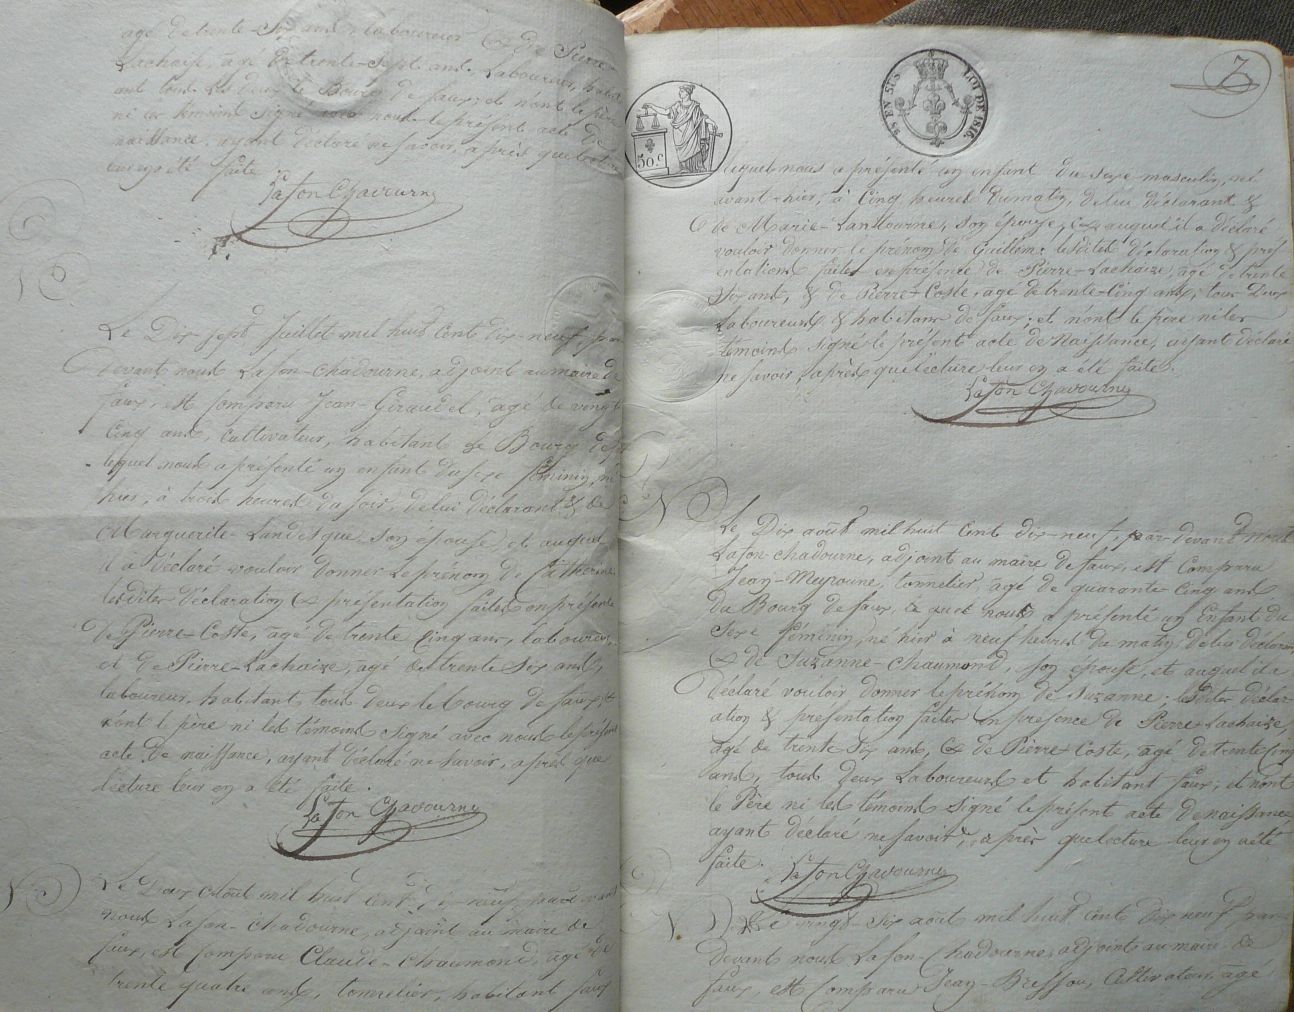 agé de trente-six ans laboureur & de Pierre
Lachaise, agé de trente-sept ans. Laboureur, habit
ant tous les deux le Bourg de faux et n'ont le père
ni les temoins signé avec nous le présent acte de
naissance, ayant déclaré ne savoir, après que lecture
leur en a été faite
Lafon Chadourne
Le Dix sept Juillet mil huit cent dix-neuf, par
devant nous Lafon-chadourne, adjoint au maire de
faux, est comparu Jean-Giraudel, agé de vingt
cinq ans, cultivateur, habitant le Bourg de
lequel nous a présenté un enfant du sexe féminin, né
hier, à trois heures du soir, de lui déclarant & de
Marguerite-Landesque, son épouse, et auquel
il a déclaré vouloir donner le prénom de Catherine
lesdites déclaration & présentation faites en présence
de Pierre-Coste, agé de trente cinq ans, laboureur,
et de Pierre-Lachaize, agé de trente six ans,
laboureur, habitant tous deux le bourg de faux, et
n'ont l père ni les témoins signé avec nous le présent
acte de naissance, ayant déclaré ne savoir, après que
lecture leur en a été faite.
Lafon Chadourne
Le Deux Août mil huit cent dix neuf, pardevant
nous Lafon-chadourne, adjoint au maire de
faux, est comparu Claude-Chaumond, agé de
trente quatre ans, tonnelier, habitant faux
7
50.c
en sus
Loi de 1816.
lequel nous a présenté un enfant du sexe masculin, né
avant-hier, à cinq heures du matin, de lui déclarant &
de Marie-Lantourne, son épouse, & auquel il a déclaré
vouloir donner le prénom de Guillem; lesdites déclaration & prés
entation faites en présence de Pierre-Lachaize, agé de trente
six ans, & de Pierre-Coste, agé de trente-cinq ans, tous Deux
Laboureurs & habitans de faux; et n'ont le père ni les
témoins signé le présent acte de Naissance, ayant déclaré
ne savoir, après que lecture leur en a été faite.
Lafon Chadourne
Le Dix août mil huit cent dix-neuf, par devant nous
Lafon-chadourne, adjoint au maire de faux, est comparu
Jean-Meyroune, tonnelier, agé de quarante-cinq ans
du Bourg de faux, lequel nous a présenté un Enfant du
sexe féminin, né hier à neuf heures du matin, de lui déclarant
& de Suzanne-Chaumond, son épouse, et auquel il a
déclaré vouloir donner le prénom de Suzanne; lesdites déclar
ation & présentation faites en présence de Pierre-Lachaize,
agé de trente six ans, & de Pierre-Coste, agé de trente cinq
ans, tous deux Laboureurs et habitant faux; et n'ont
le Père ni les témoins signé le présent acte de naissance
ayant déclaré ne savoir, après que lecture leur en a été
faite.
Lafon Chadourne
Le vingt-six août mil huit cent dix neuf, par
devant nous Lafon-Chadourne, adjoint au maire de
faux, est comparu Jean-Bresson, Cultivateur, agé